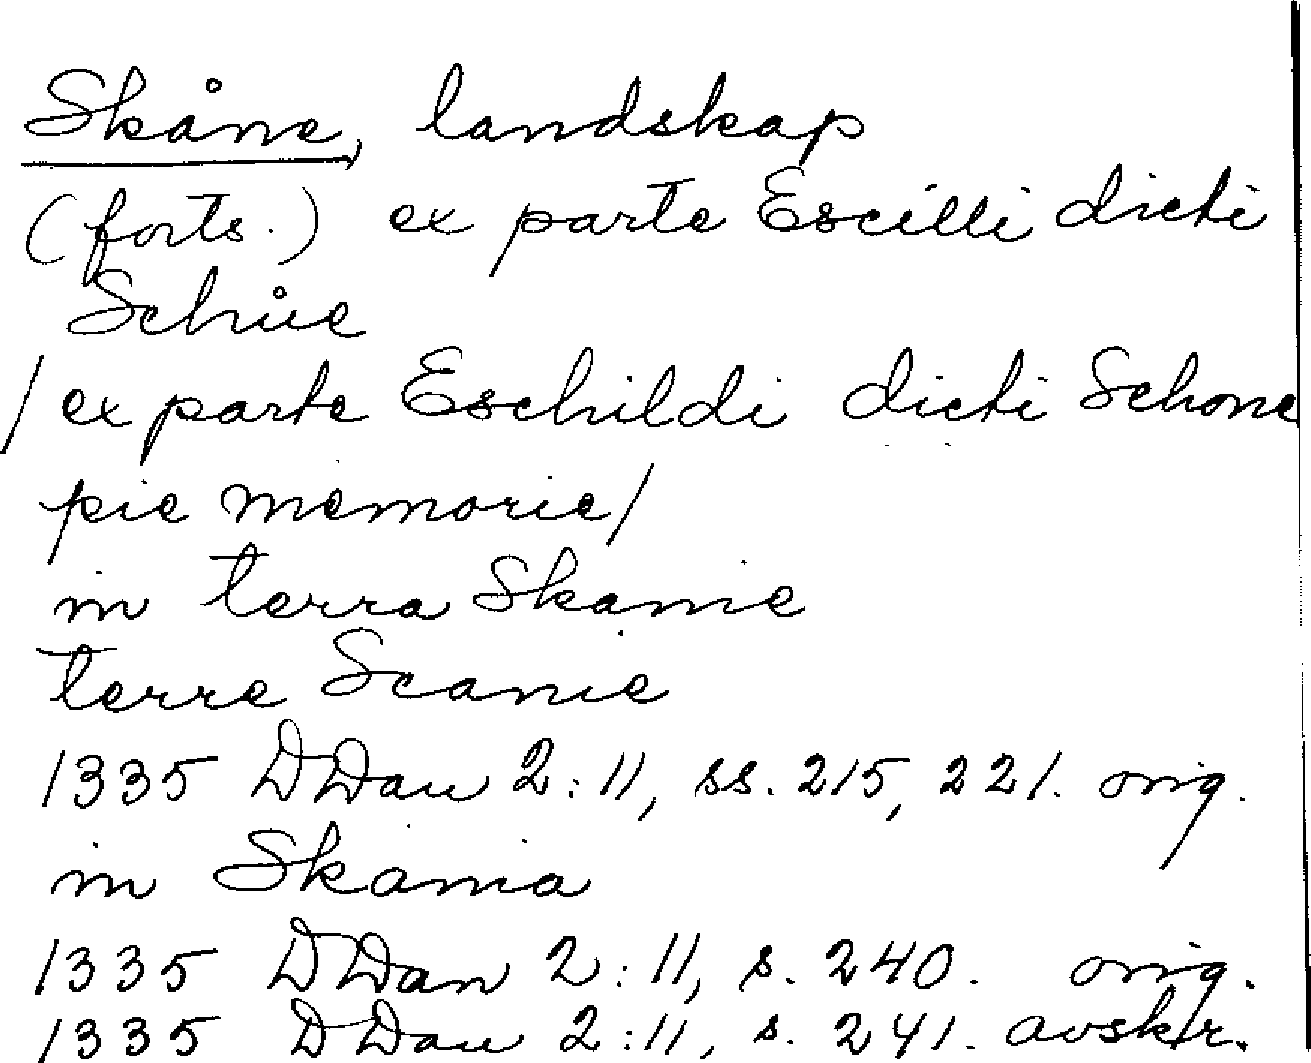 Skåne, landskap
(forts.) ex parte Escilli dicti
Schůe
/ex parte Eschildi dicti Schone
pie memorie/
in terra Skanie
terre Scanie
1335 DDan 2:11, ss. 215, 221. orig.
in Skania
1335 DDan 2:11, s. 240. orig.
1335 DDan 2:11, s. 241. avskr.